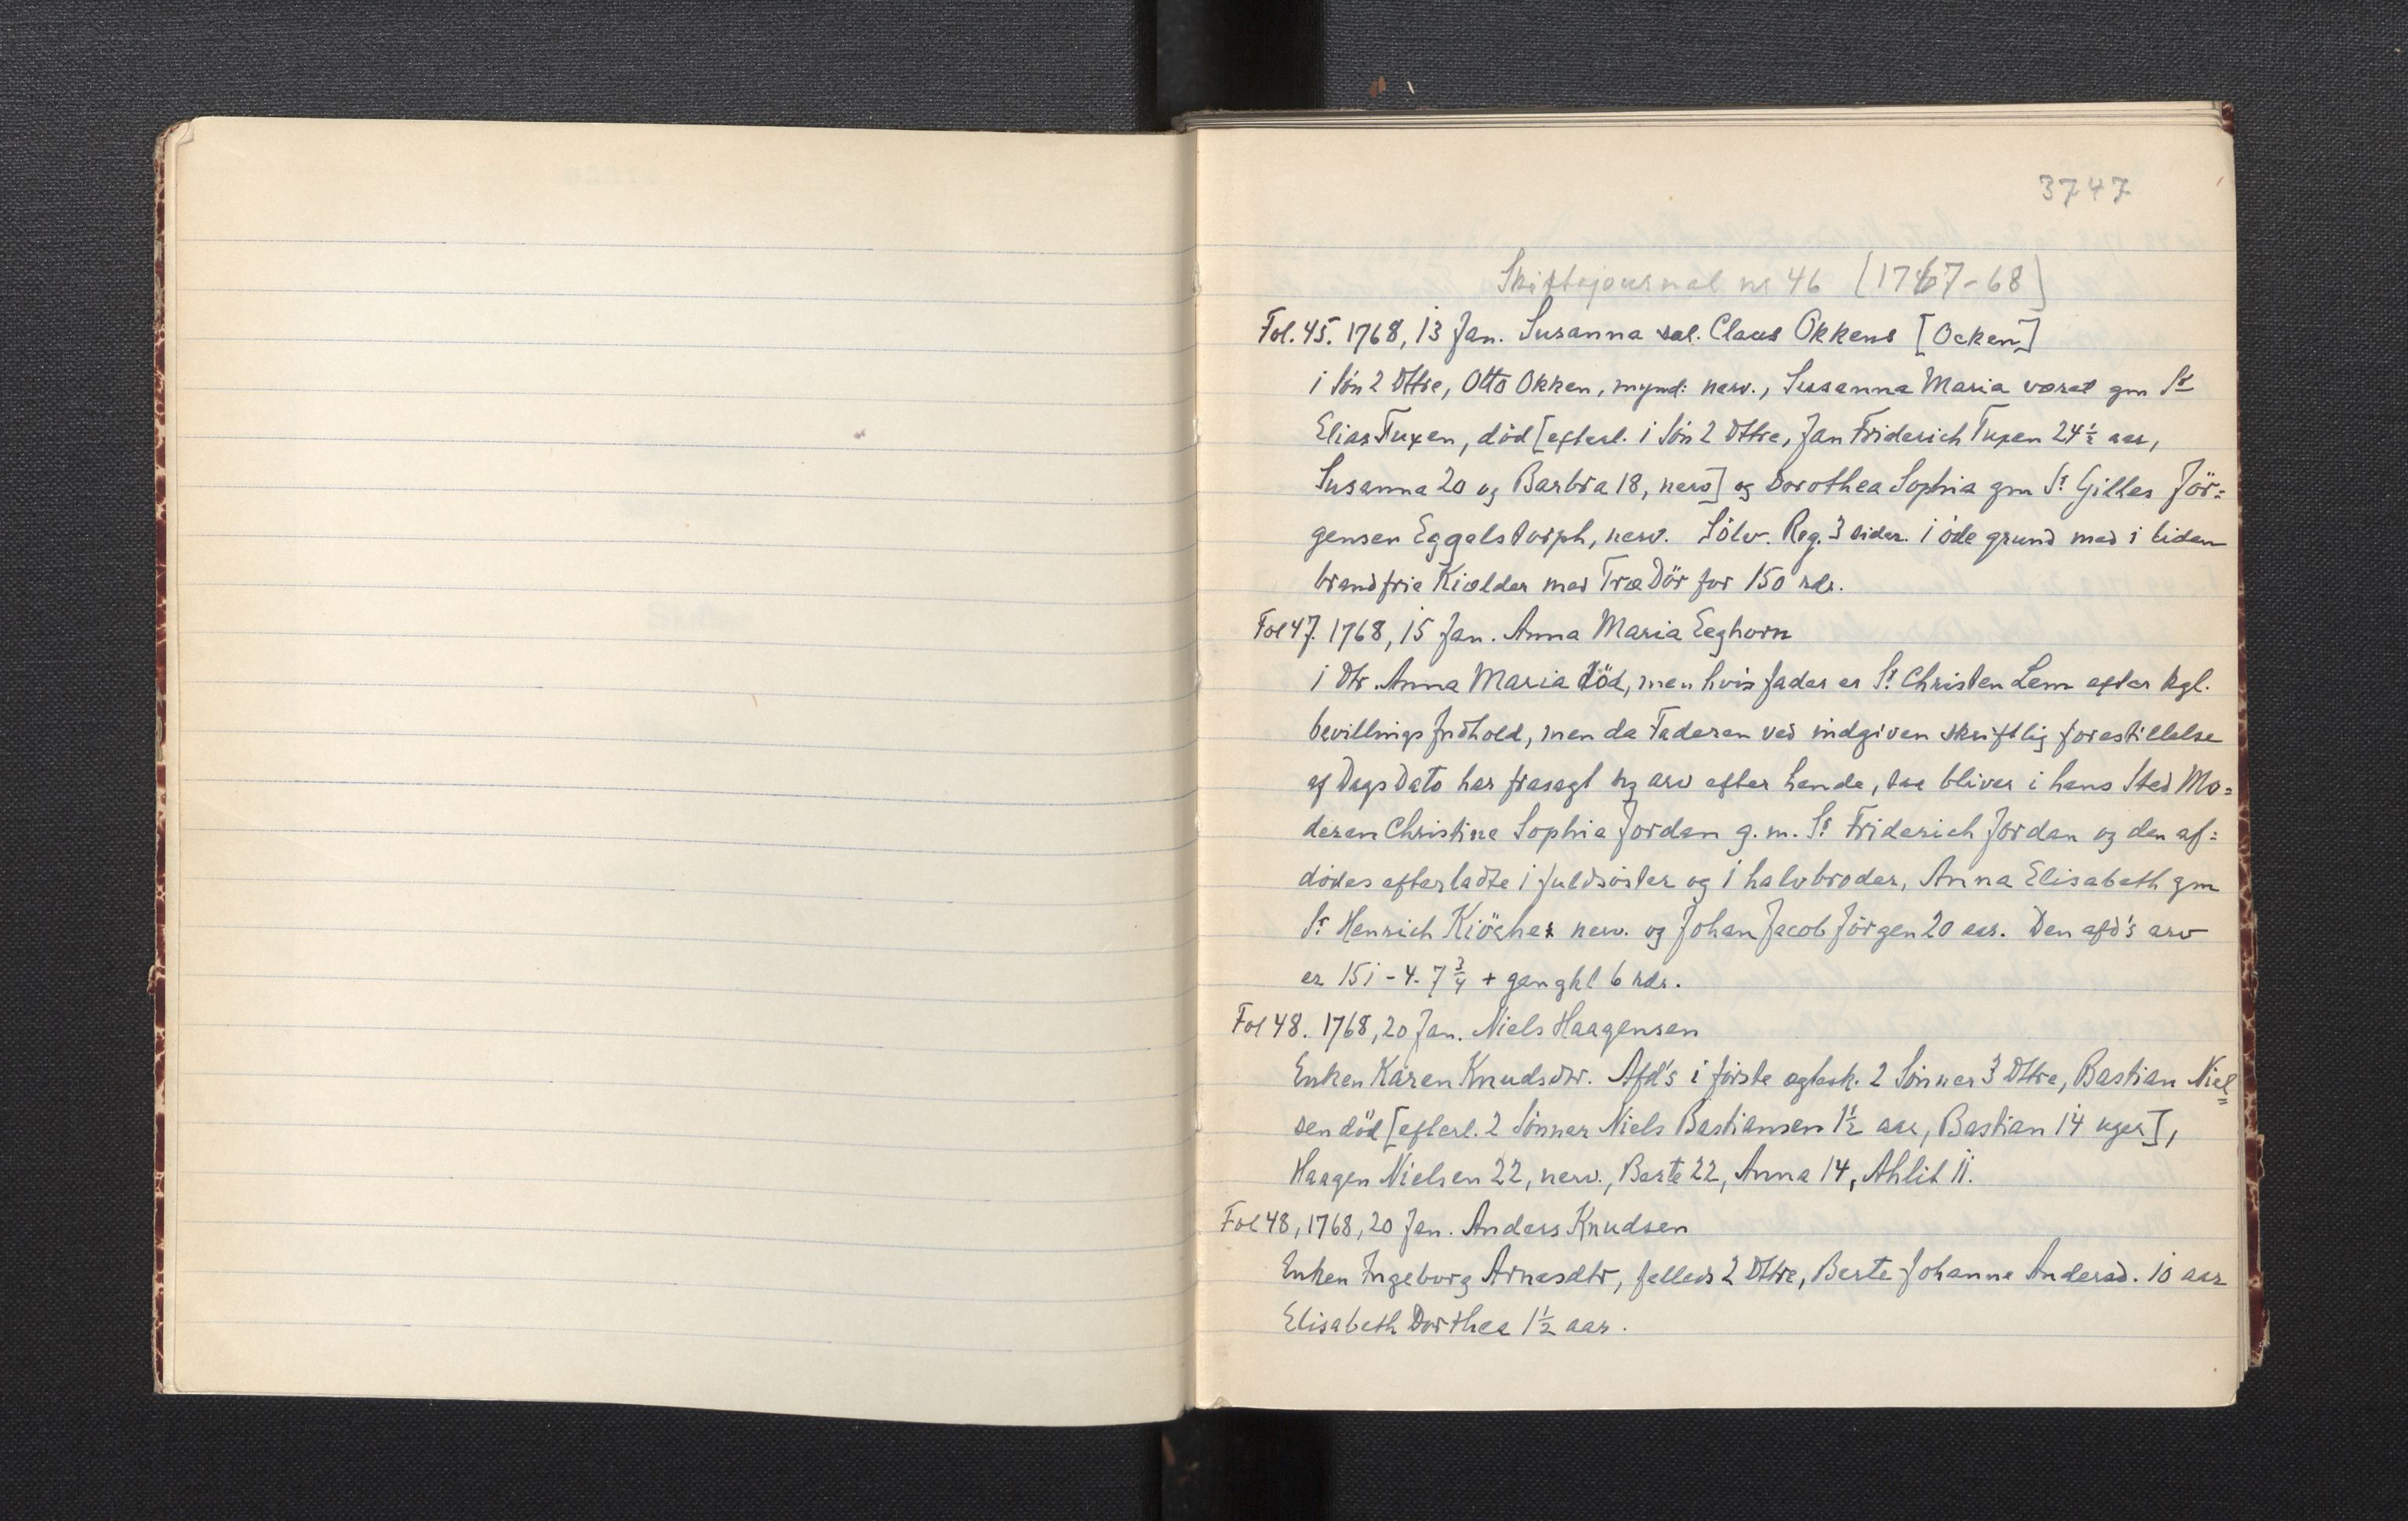 3747
Skiftejournal nr 46 [1767-68]
Fol. 45. 1768, 13 Jan. Susanna sal. Claus Okkens [Ocken]
1 Søn 2 Dttre, Otto Okken, mynd: nerv., Susanna Maria været gm Sr
Elias Tuxen, död [efterl. 1 Søn 2 Dttre, Jan Friderich Tuxen 24½ aar,
Susanna 20 og Barbra 18, nerv] og Dorothea Sophia gm Sr. Gilles Jör=
gensen Eggelstorph, nerv. Sölv. Reg. 3 sider. 1 öde grund med 1 liden
brandfrie Kiælder med Træ Dör for 150 rdr.
Fol 47. 1768, 15 Jan. Anna Maria Eeghorn
1 Dtr. Anna Maria död, men hvis fader er Sr. Christen Lem efter kgl.
bevillings Indhold, men da Faderen ved indgiven skriftlig forestillelse
af Dags Dato har frasagt sig arv efter hende, saa bliver i hans Sted Mo=
deren Christina Sophia Jordan g.m. Sr. Friderich Jordan og den af=
dødes efterladte 1 fuldsøster og 1 halvbroder, Anna Elisabeth gm
Sr. Henrich Kiöcher nerv. og Johan Jacob Jörgen 20 aar. Den afd's arv
er 151-4-7¾ + gangkl 6 rdr.
Fol 48. 1768, 20 Jan. Niels Haagensen
Enken Karen Knudsdtr. Afd's i første ægtesk. 2 Sønner 3 Dttre, Bastian Niel=
sen död [efterl. 2 Sønner Niels Bastiansen 1½ aar, Bastian 14 uger],
Haagen Nielsen 22, nerv., Berte 22, Anna 14, Ahlit 11.
Fol 48, 1768, 20 Jan. Anders Knudsen
Enken Ingeborg Arnesdtr, felleds 2 Dttre, Berte Johanne Andersd. 10 aar
Elisabeth Dorthea 1½ aar.